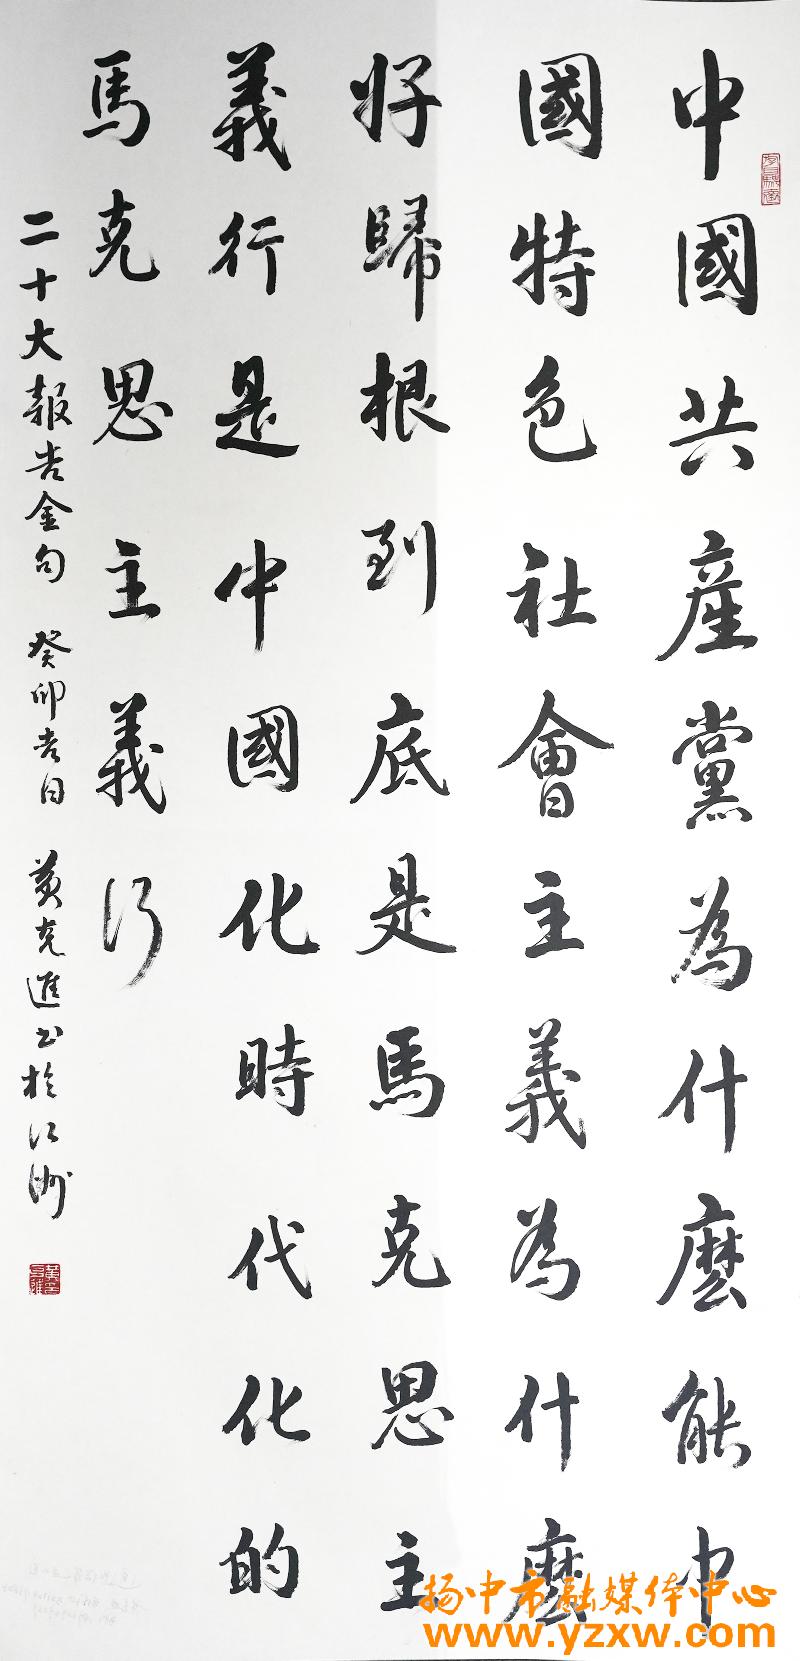 中國共產黨為什麼能中
國特色社會主義為什麼
好歸根到底是馬克思主
義行是中國化時代化的
馬克思主義行
二十大報告金句 癸卯春日 黃克進书於江洲
扬中市融媒体中心
www.yzxw.com